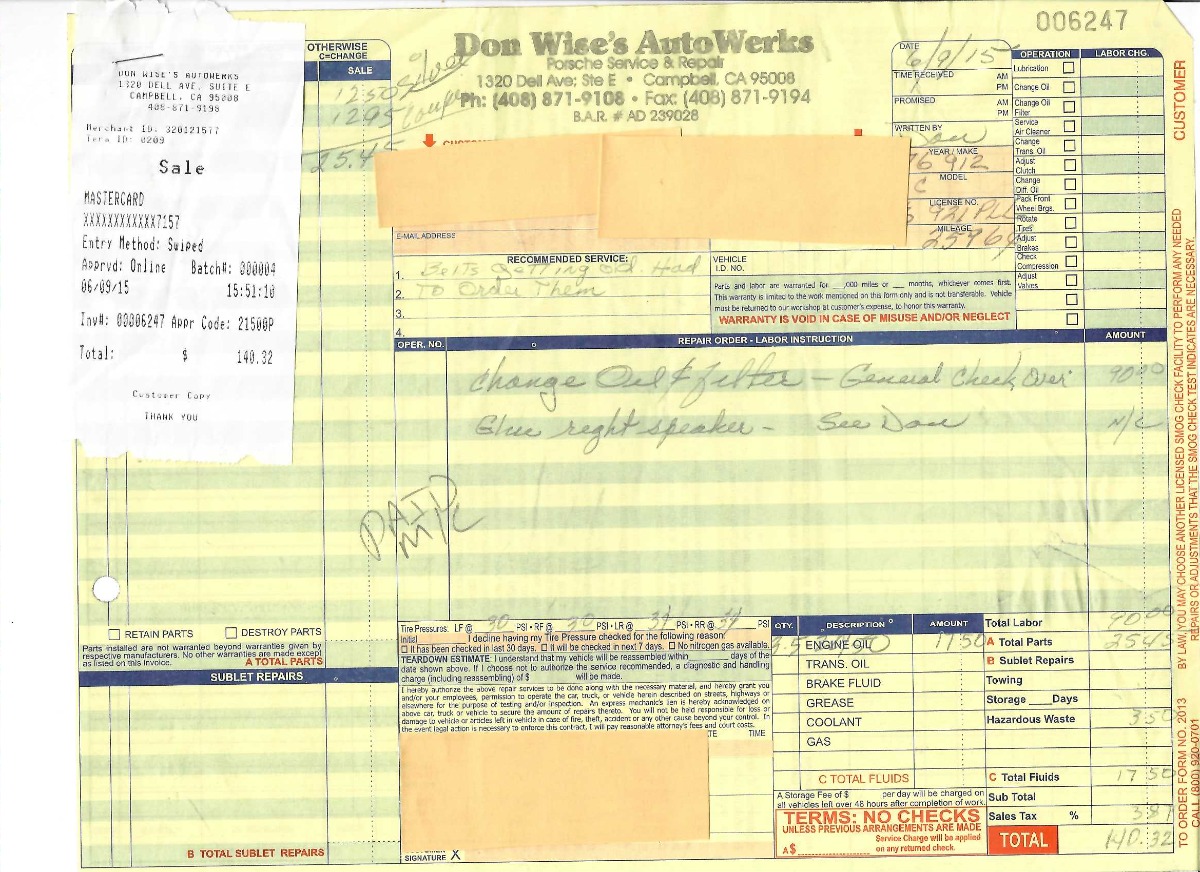 006247
DON WISE'S AUTOWERKS
1320 DELL AVE. SUITE E
CAMPBELL, CA 95008
408-871-9198
Merchant ID: 320121577
Term ID: 0209
Sale
MASTERCARD
XXXXXXXXXXXX7157
Entry Method: Swiped
Apprvd: Online Batch#: 000004
06/09/15 15:51:10
Inv#: 00006247 Appr Code: 21500P
Total: $ 140.32
Customer Copy
THANK YOU
OTHERWISE
C=CHANGE
SALE
1250
1295
25.45
Silver
Coupe
Don Wise's AutoWerks
Porsche Service & Repair
1320 Dell Ave; Ste E • Campbell, CA 95008
Ph: (408) 871-9108 • Fax: (408) 871-9194
B.A.R. # AD 239028
DATE 6/9/15
TIME RECEIVED AM PM
PROMISED AM PM
WRITTEN BY Dan
YEAR / MAKE
76 912
MODEL
LICENSE NO.
MILEAGE
OPERATION LABOR CHG.
Lubrication
Change Oil
Change Oil Filter
Service Air Cleaner
Change Trans. Oil
Adjust Clutch
Change Diff. Oil
Pack Front Wheel Brgs.
Rotate Tires
Adjust Brakes
Check Compression
Adjust Valves
CUSTOMER
E-MAIL ADDRESS
RECOMMENDED SERVICE:
1. Belts Getting Old. Had
2. To Order Them
3.
4.
VEHICLE I.D. NO.
Parts and labor are warranted for __,000 miles or __ months, whichever comes first.
This warranty is limited to the work mentioned on this form only and is not transferable. Vehicle
must be returned to our workshop at customer's expense, to honor this warranty.
WARRANTY IS VOID IN CASE OF MISUSE AND/OR NEGLECT
OPER. NO. REPAIR ORDER - LABOR INSTRUCTION AMOUNT
Change Oil & filter - General Check Over 90.00
Glue right speaker - See Dan N/C
PAID
M/C
RETAIN PARTS DESTROY PARTS
Parts installed are not warranted beyond warranties given by
respective manufacturers. No other warranties are made except
as listed on this Invoice.
A TOTAL PARTS
SUBLET REPAIRS
B TOTAL SUBLET REPAIRS
Tire Pressures: LF @ 30 PSI • RF @ 30 PSI • LR @ 34 PSI • RR @ 34 PSI
Initial I decline having my Tire Pressure checked for the following reason:
It has been checked in last 30 days. It will be checked in next 7 days. No nitrogen gas available.
TEARDOWN ESTIMATE: I understand that my vehicle will be reassembled within days of the
date shown above. If I choose not to authorize the service recommended, a diagnostic and handling
charge (including reassembling) of $ will be made.
I hereby authorize the above repair services to be done along with the necessary material, and hereby grant you
and/or your employees, permission to operate the car, truck, or vehicle herein described on streets, highways or
elsewhere for the purpose of testing and/or inspection. An express mechanic's lien is hereby acknowledged on
above car, truck or vehicle to secure the amount of repairs thereto. You will not be held responsible for loss or
damage to vehicle or articles left in vehicle in case of fire, theft, accident or any other cause beyond your control. In
the event legal action is necessary to enforce this contract, I will pay reasonable attorney's fees and court costs.
TIME
SIGNATURE X
QTY. DESCRIPTION AMOUNT
ENGINE OIL 1750
TRANS. OIL
BRAKE FLUID
GREASE
COOLANT
GAS
C TOTAL FLUIDS
A Storage Fee of $ per day will be charged on
all vehicles left over 48 hours after completion of work.
TERMS: NO CHECKS
UNLESS PREVIOUS ARRANGEMENTS ARE MADE
Service Charge will be applied
A $ on any returned check.
Total Labor 90.00
A Total Parts 2545
B Sublet Repairs
Towing
Storage ___ Days
Hazardous Waste 3.50
C Total Fluids 17 50
Sub Total
Sales Tax % 3.87
TOTAL 140.32
CUSTOMER
BY LAW, YOU MAY CHOOSE ANOTHER LICENSED SMOG CHECK FACILITY TO PERFORM ANY NEEDED
REPAIRS OR ADJUSTMENTS THAT THE SMOG CHECK TEST INDICATES ARE NECESSARY.
TO ORDER FORM NO. 2013
CALL (800) 920-0701